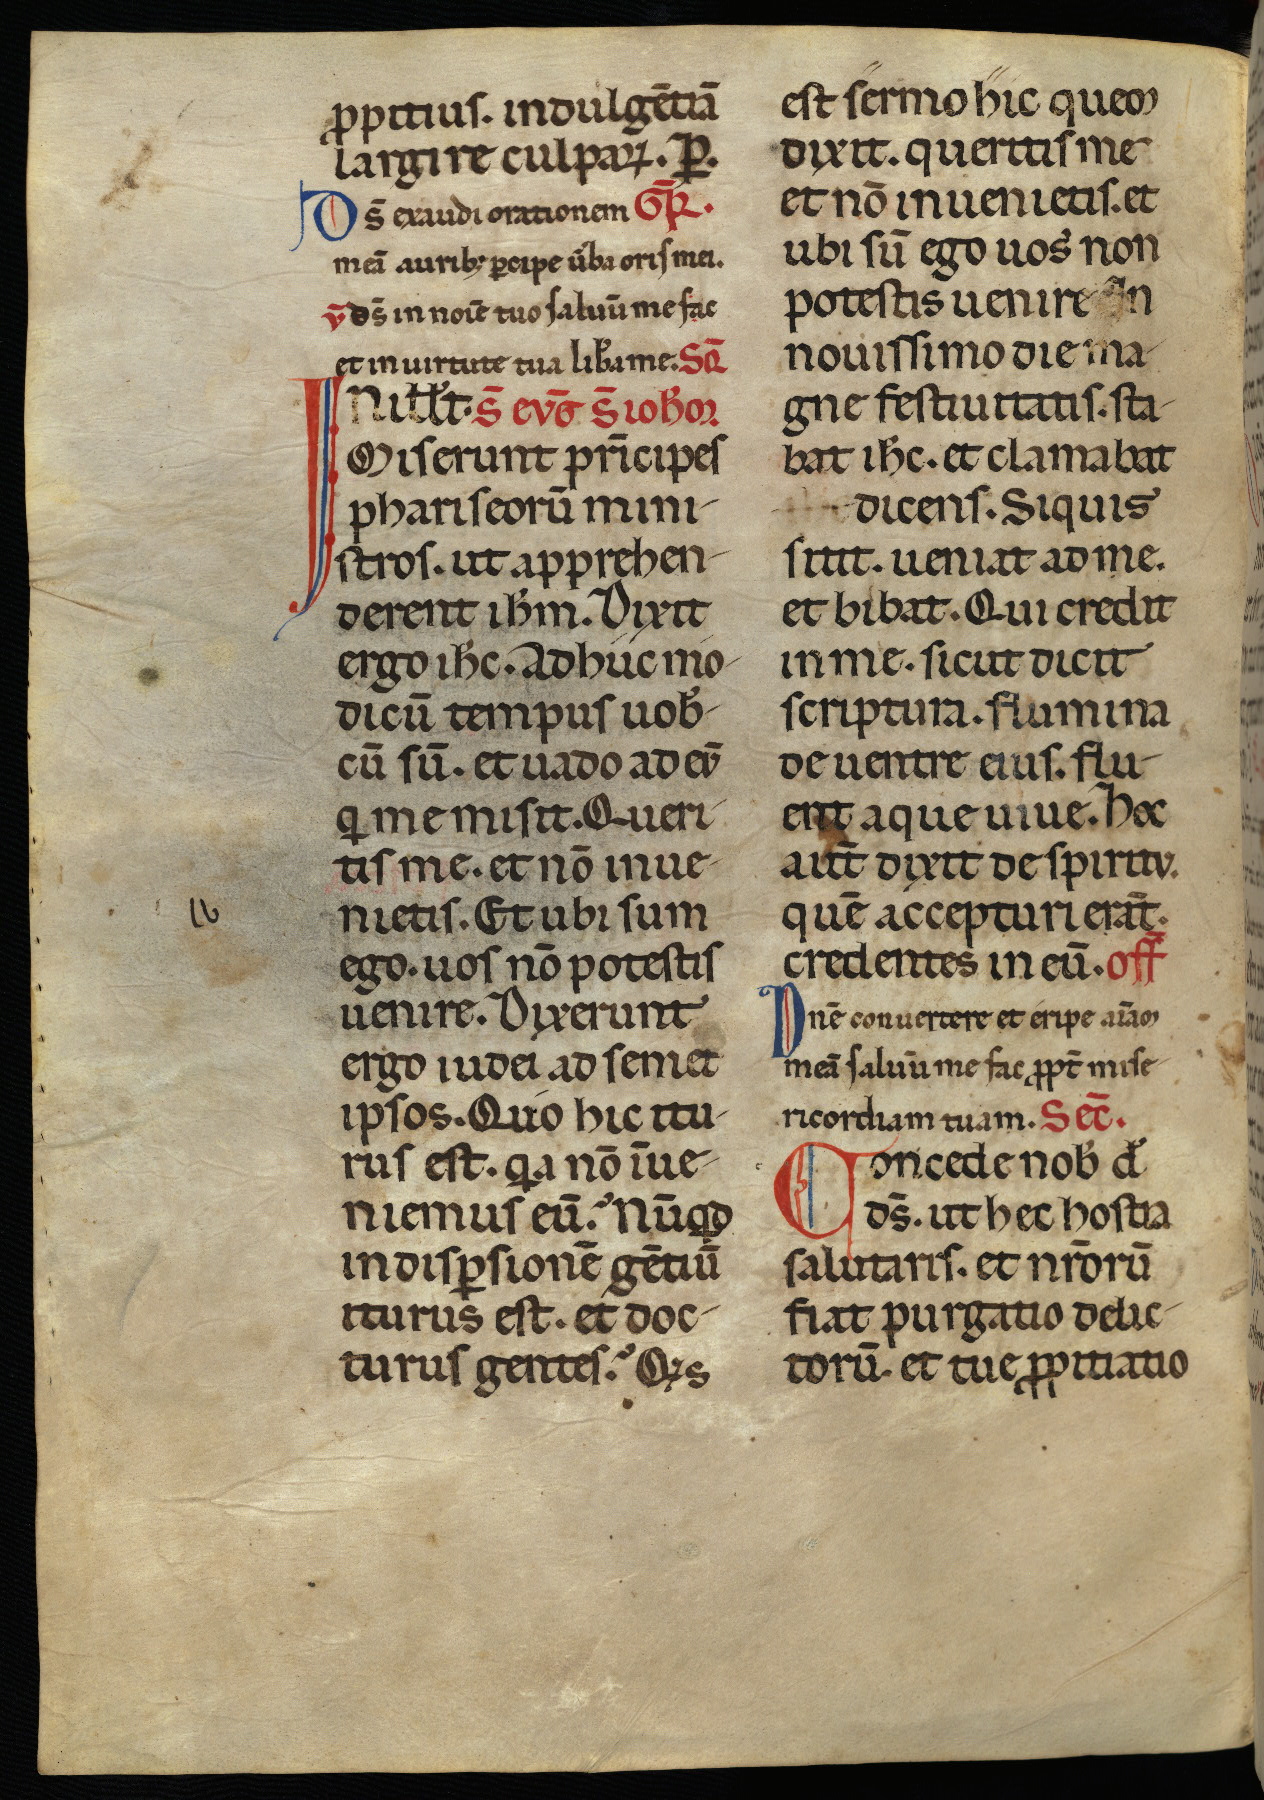 p̱pitius. indulgẽtiã
largire culpaꝝ. P̱.
Ds̃ exaudi orationem G̃R.
meã auribꝫ ꝑcipe ũba oris mei.
v̄ ds̃ in noiẽ tuo saluũ me fac
et in uirtute tua lib̃a me. Sq̃
IN ill̃ t. S̃ eṽg S̃ ioh̃em
Miserunt pr̃icipes
phariseorũ mini-
stros. ut apprehen-
derent ih̃m. Dixit
ergo ih̃c. Adhuc mo-
dicũ tempus uob̃-
cũ sũ. et uado ad eũ
qi me misit. Queri-
tis me. et nõ inue-
nietis. Et ubi sum
16
ego. uos nõ potestis
uenire. Dixerunt
ergo iudei ad semet
ipsos. Quo hic itu-
rus est. qa nõ ĩue-
niemus eũ. Nũqd
in disꝑsionẽ gẽtiũ
iturus est. et doc-
turus gentes. Qis
est sermo hic quem
dixit. queritis me
et nõ inuenietis. et
ubi sũ ego uos non
potestis uenire In
nouissimo die ma-
gne festiuitatis. sta-
bat ih̃c. et clamabat
dicens. Siquis
sitit. ueniat ad me.
et bibat. Qui credit
in me. sicut dicit
scriptura. flumina
de uentre eius. flu-
ent aque uiue. Hoc
aut̃ dixit de spiritu.
quẽ accepturi erãt.
credentes in eũ. off̃
Dnẽ conuertere et eripe aĩam
meã saluũ me fac ꝓpt̃ mise-
ricordiam tuam. Sec̃.
Concede nob̃ q̃s
ds̃. ut hec hostia
salutaris. et nr̃orũ
fiat purgatio delic-
torũ. et tue ꝓpitiatio